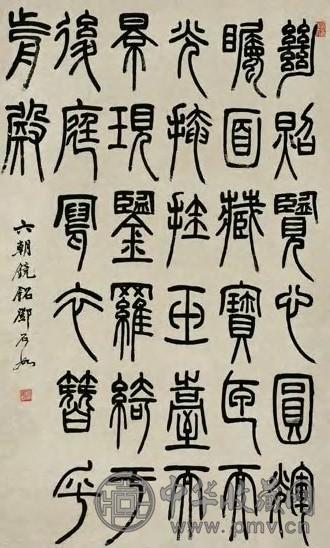 絕照覽心圓輝
矚面藏寶匣而
光掩挂玉臺而
景現鑒羅綺于
後庭寫衣簪乎
前殿
六朝鏡銘鄧石如
中华收藏网
www.pmv.cn